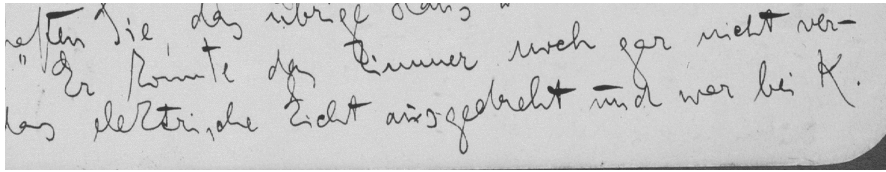 das übrige Haus"
"Er konnte das Zimmer noch gar nicht ver-
das elektrische Licht ausgedreht und war bei K.